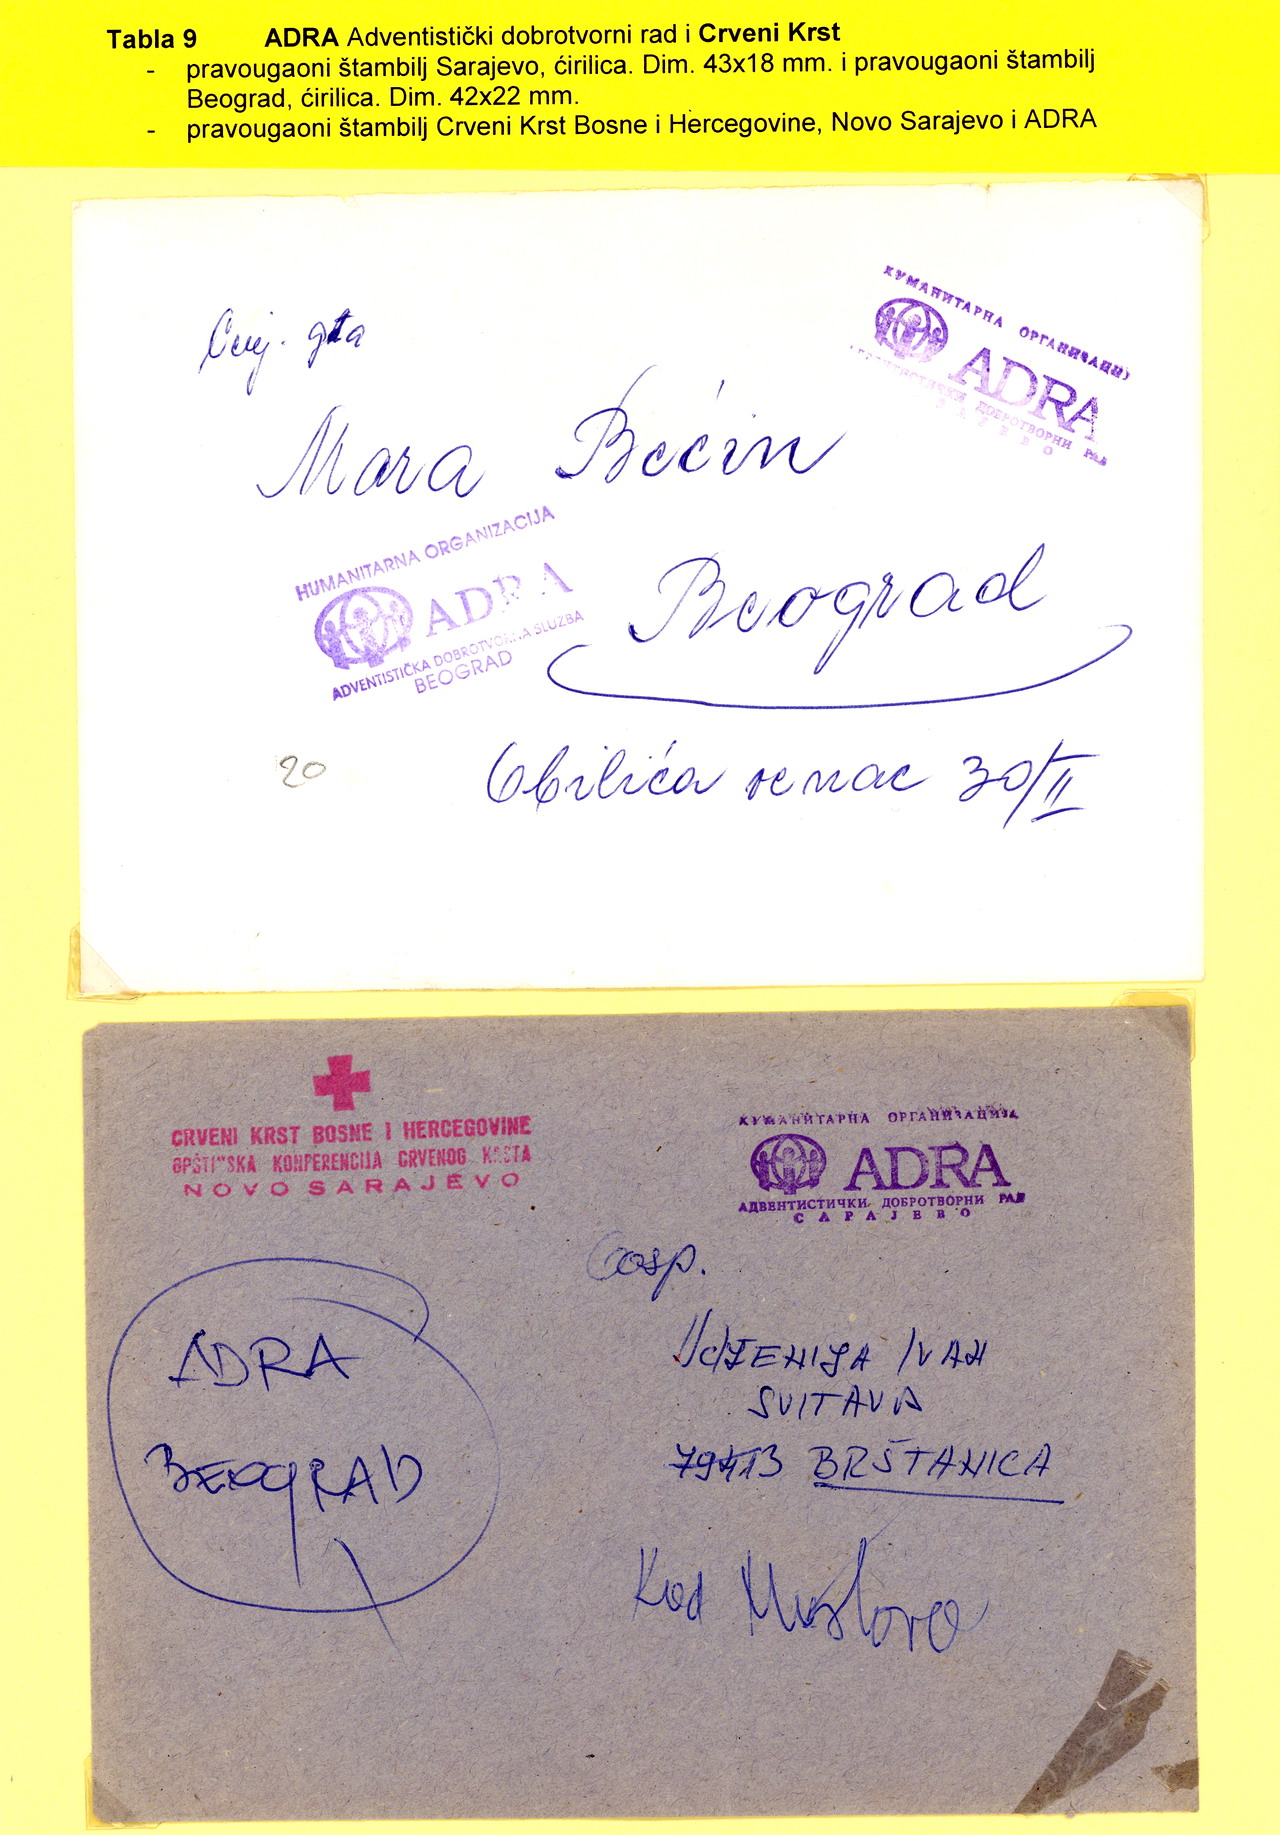 Tabla 9 ADRA Adventistički dobrotvorni rad i Crveni Krst
- pravougaoni štambilj Sarajevo, ćirilica. Dim. 43x18 mm. i pravougaoni štambilj
Beograd, ćirilica. Dim. 42x22 mm.
- pravougaoni štambilj Crveni Krst Bosne i Hercegovine, Novo Sarajevo i ADRA
ХУМАНИТАРНА ОРГАНИЗАЦИЈ
ADRA
ДОБРОТВОРНИ РАД
Cvij. gta
Mara Bećin
HUMANITARNA ORGANIZACIJA
ADRA
ADVENTISTIČKA DOBROTVORNA SLUZBA
BEOGRAD
Beograd
20
Obilića venac 30/II
CRVENI KRST BOSNE I HERCEGOVINE
OPŠTINSKA KONFERENCIJA CRVENOG KRSTA
NOVO SARAJEVO
ХУМАНИТАРНА ОРГАНИЗАЦИЈА
ADRA
АДВЕНТИСТИЧКИ ДОБРОТВОРНИ РАД
САРАЈЕВО
Gosp.
IVAN
SVITAVA
79413 BRŠTANICA
ADRA
BEOGRAD
Kod Mostara